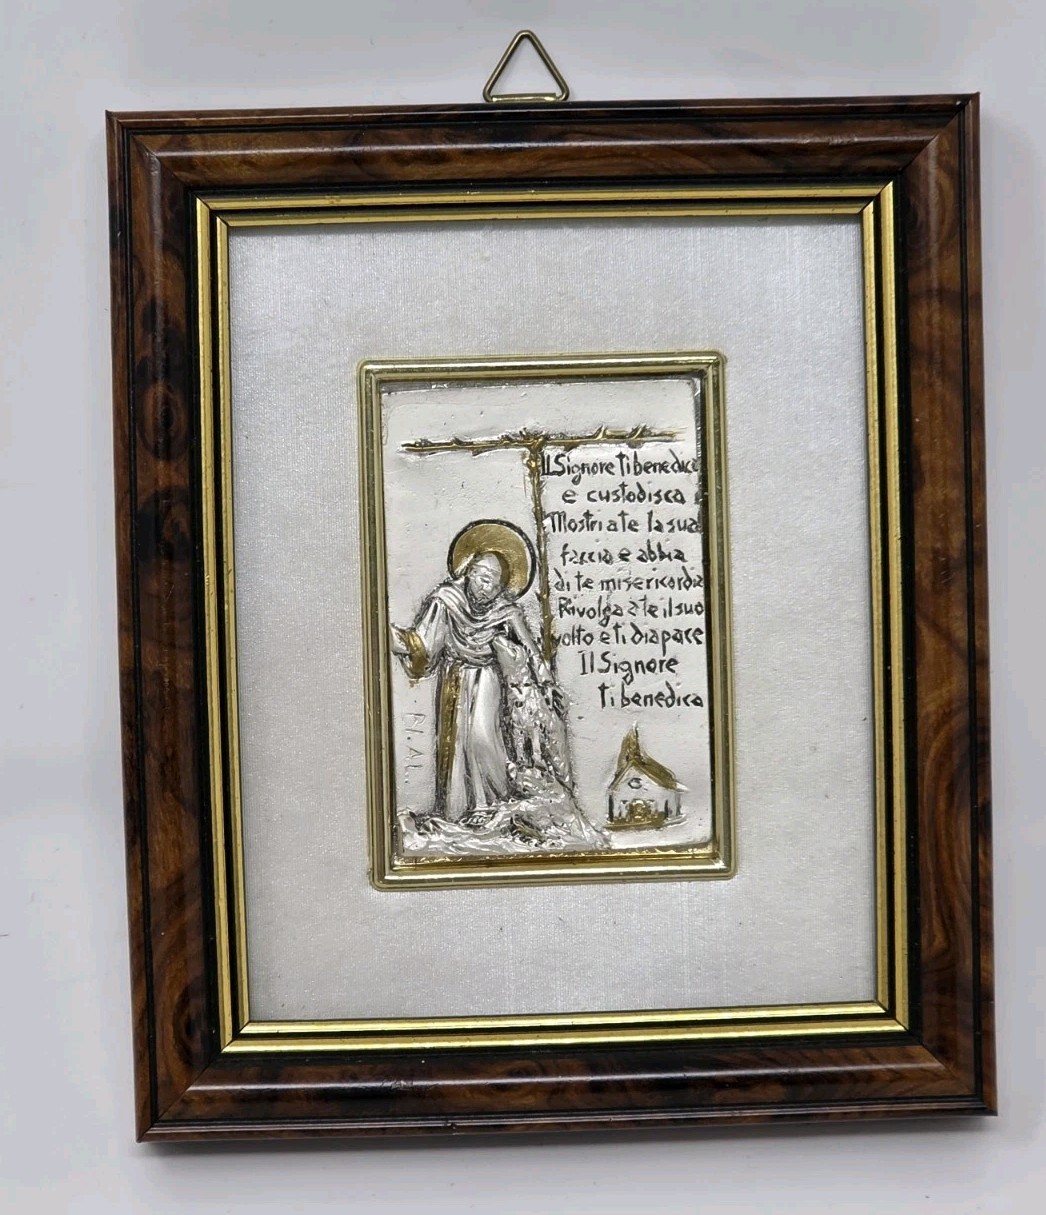 Il Signore ti benedica
e custodisca
Mostri a te la sua
faccia e abbia
di te misericordia
Rivolga a te il suo
volto e ti dia pace
Il Signore
ti benedica